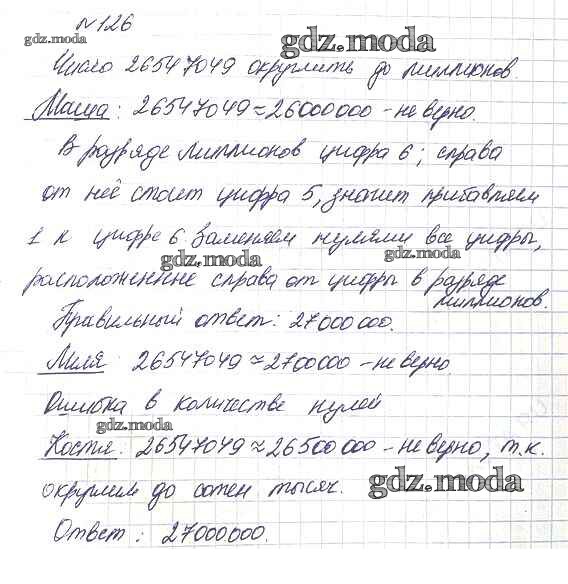 №126
gdz.moda
gdz.moda
Число 26547049 округлить до миллионов.
Маша: 26547049≈26000000 - не верно.
gdz.moda
В разряде миллионов цифра 6; справа
от неё стоит цифра 5, значит прибавляем
1 к цифре 6. Заменяем нулями все цифры,
gdz.moda
gdz.moda
расположенные справа от цифры в разряде
миллионов.
Правильный ответ: 27000000.
Миля: 26547049≈2700000 - не верно.
Ошибка в количестве нулей
gdz.moda
Костя: 26547049≈26500000 - не верно, т.к.
округлил до сотен тысяч.
gdz.moda
Ответ: 27000000.